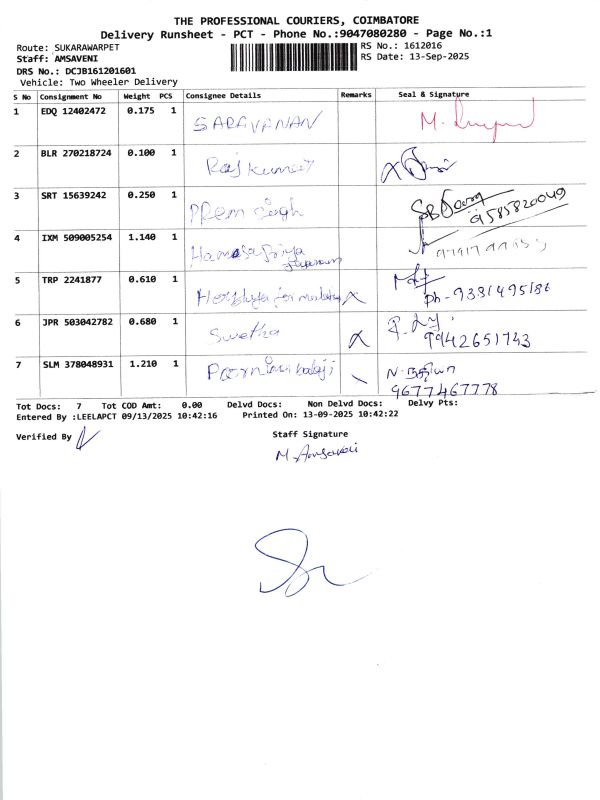 THE PROFESSIONAL COURIERS, COIMBATORE
Delivery Runsheet - PCT - Phone No.:9047080280 - Page No.:1
Route: SUKARAWARPET RS No.: 1612016
Staff: AMSAVENI RS Date: 13-Sep-2025
DRS No.: DCJB161201601
Vehicle: Two Wheeler Delivery
S No Consignment No Weight PCS Consignee Details Remarks Seal & Signature
1 EDQ 12402472 0.175 1 SARAVANAN M.
2 BLR 270218724 0.100 1 Raj kumar
3 SRT 15639242 0.250 1 PRem Singh 9585820049
4 IXM 509005254 1.140 1
5 TRP 2241877 0.610 1 Ph - 9381495186
6 JPR 503042782 0.680 1 Swetha 9942651743
7 SLM 378048931 1.210 1 balaji 9677467778
Tot Docs: 7 Tot COD Amt: 0.00 Delvd Docs: Non Delvd Docs: Delvy Pts:
Entered By :LEELAPCT 09/13/2025 10:42:16 Printed On: 13-09-2025 10:42:22
Verified By Staff Signature
M. Amsaveni